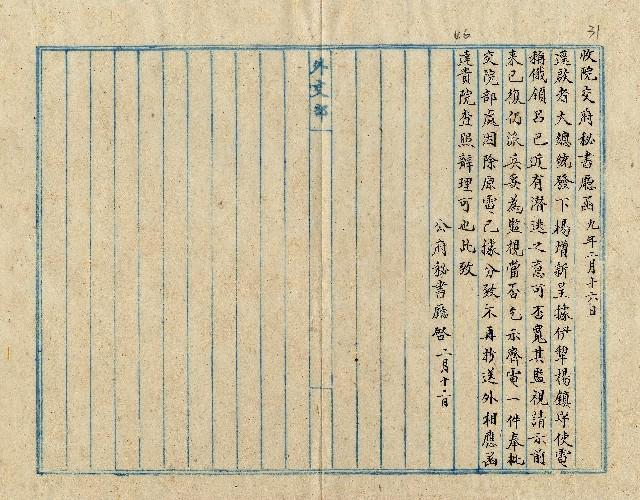 31
收院交府秘書廳函 九年二月十六日
逕啟者大總統發下楊增新呈據伊犁楊鎮守使電
稱俄領呂巴近有潛逃之意可否寬其監視請示前
來已復仍派妥妥為監視當否乞示齊電一件奉批
交院部處因除原電已據分致不再抄送外相應函
達貴院查照辦理可也此致
公府秘書廳啓 二月十二日
外交部